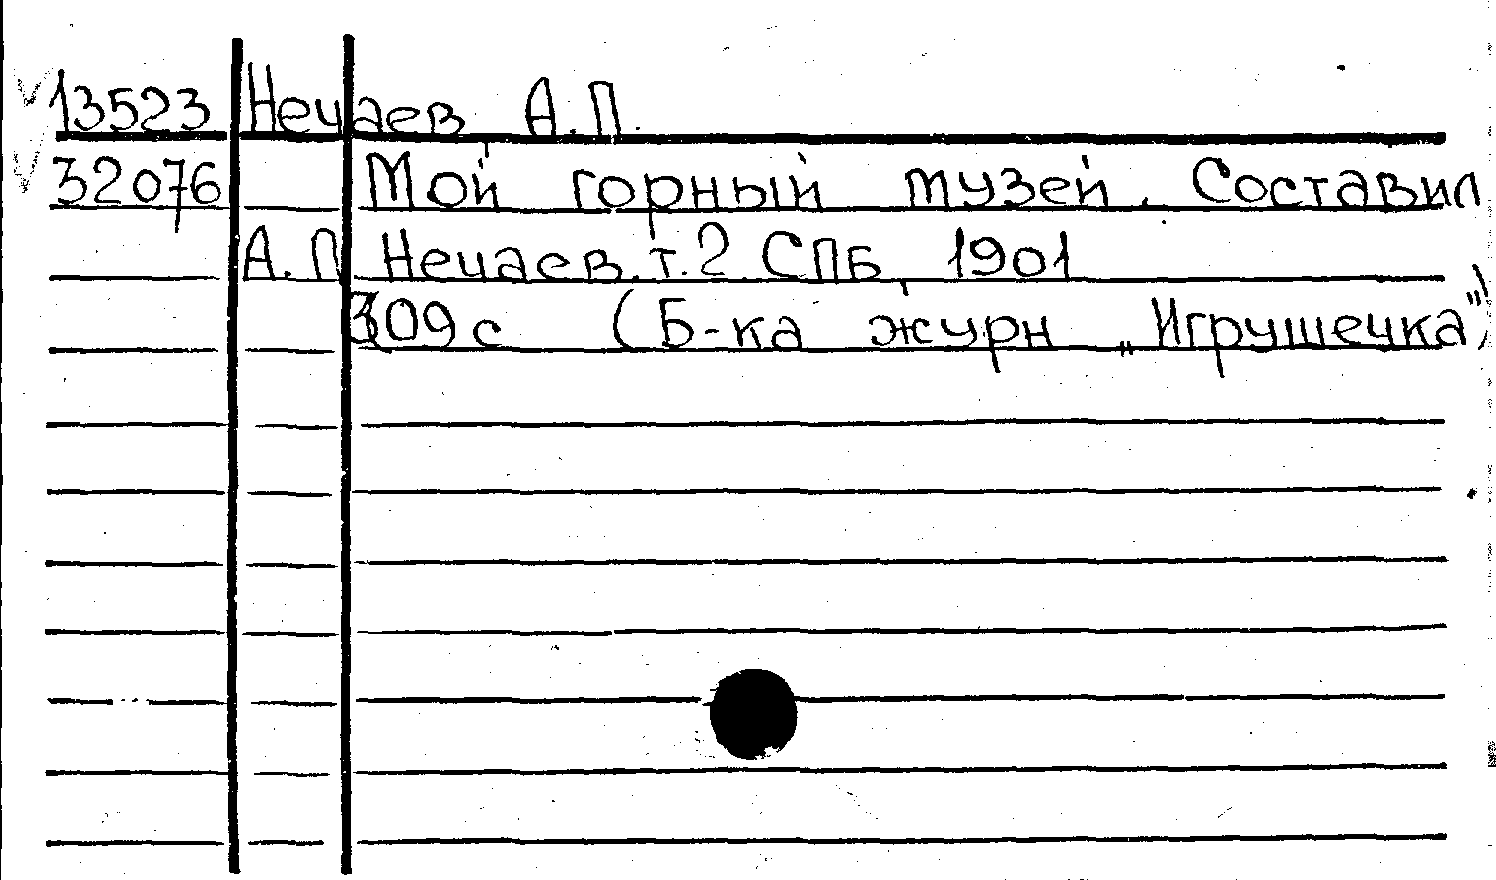 13523 Нечаев А.П.
32076 Мой горный музей. Составил
А.П. Нечаев. т.2. СПБ, 1901
309 с (Б-ка журн „Игрушечка”)